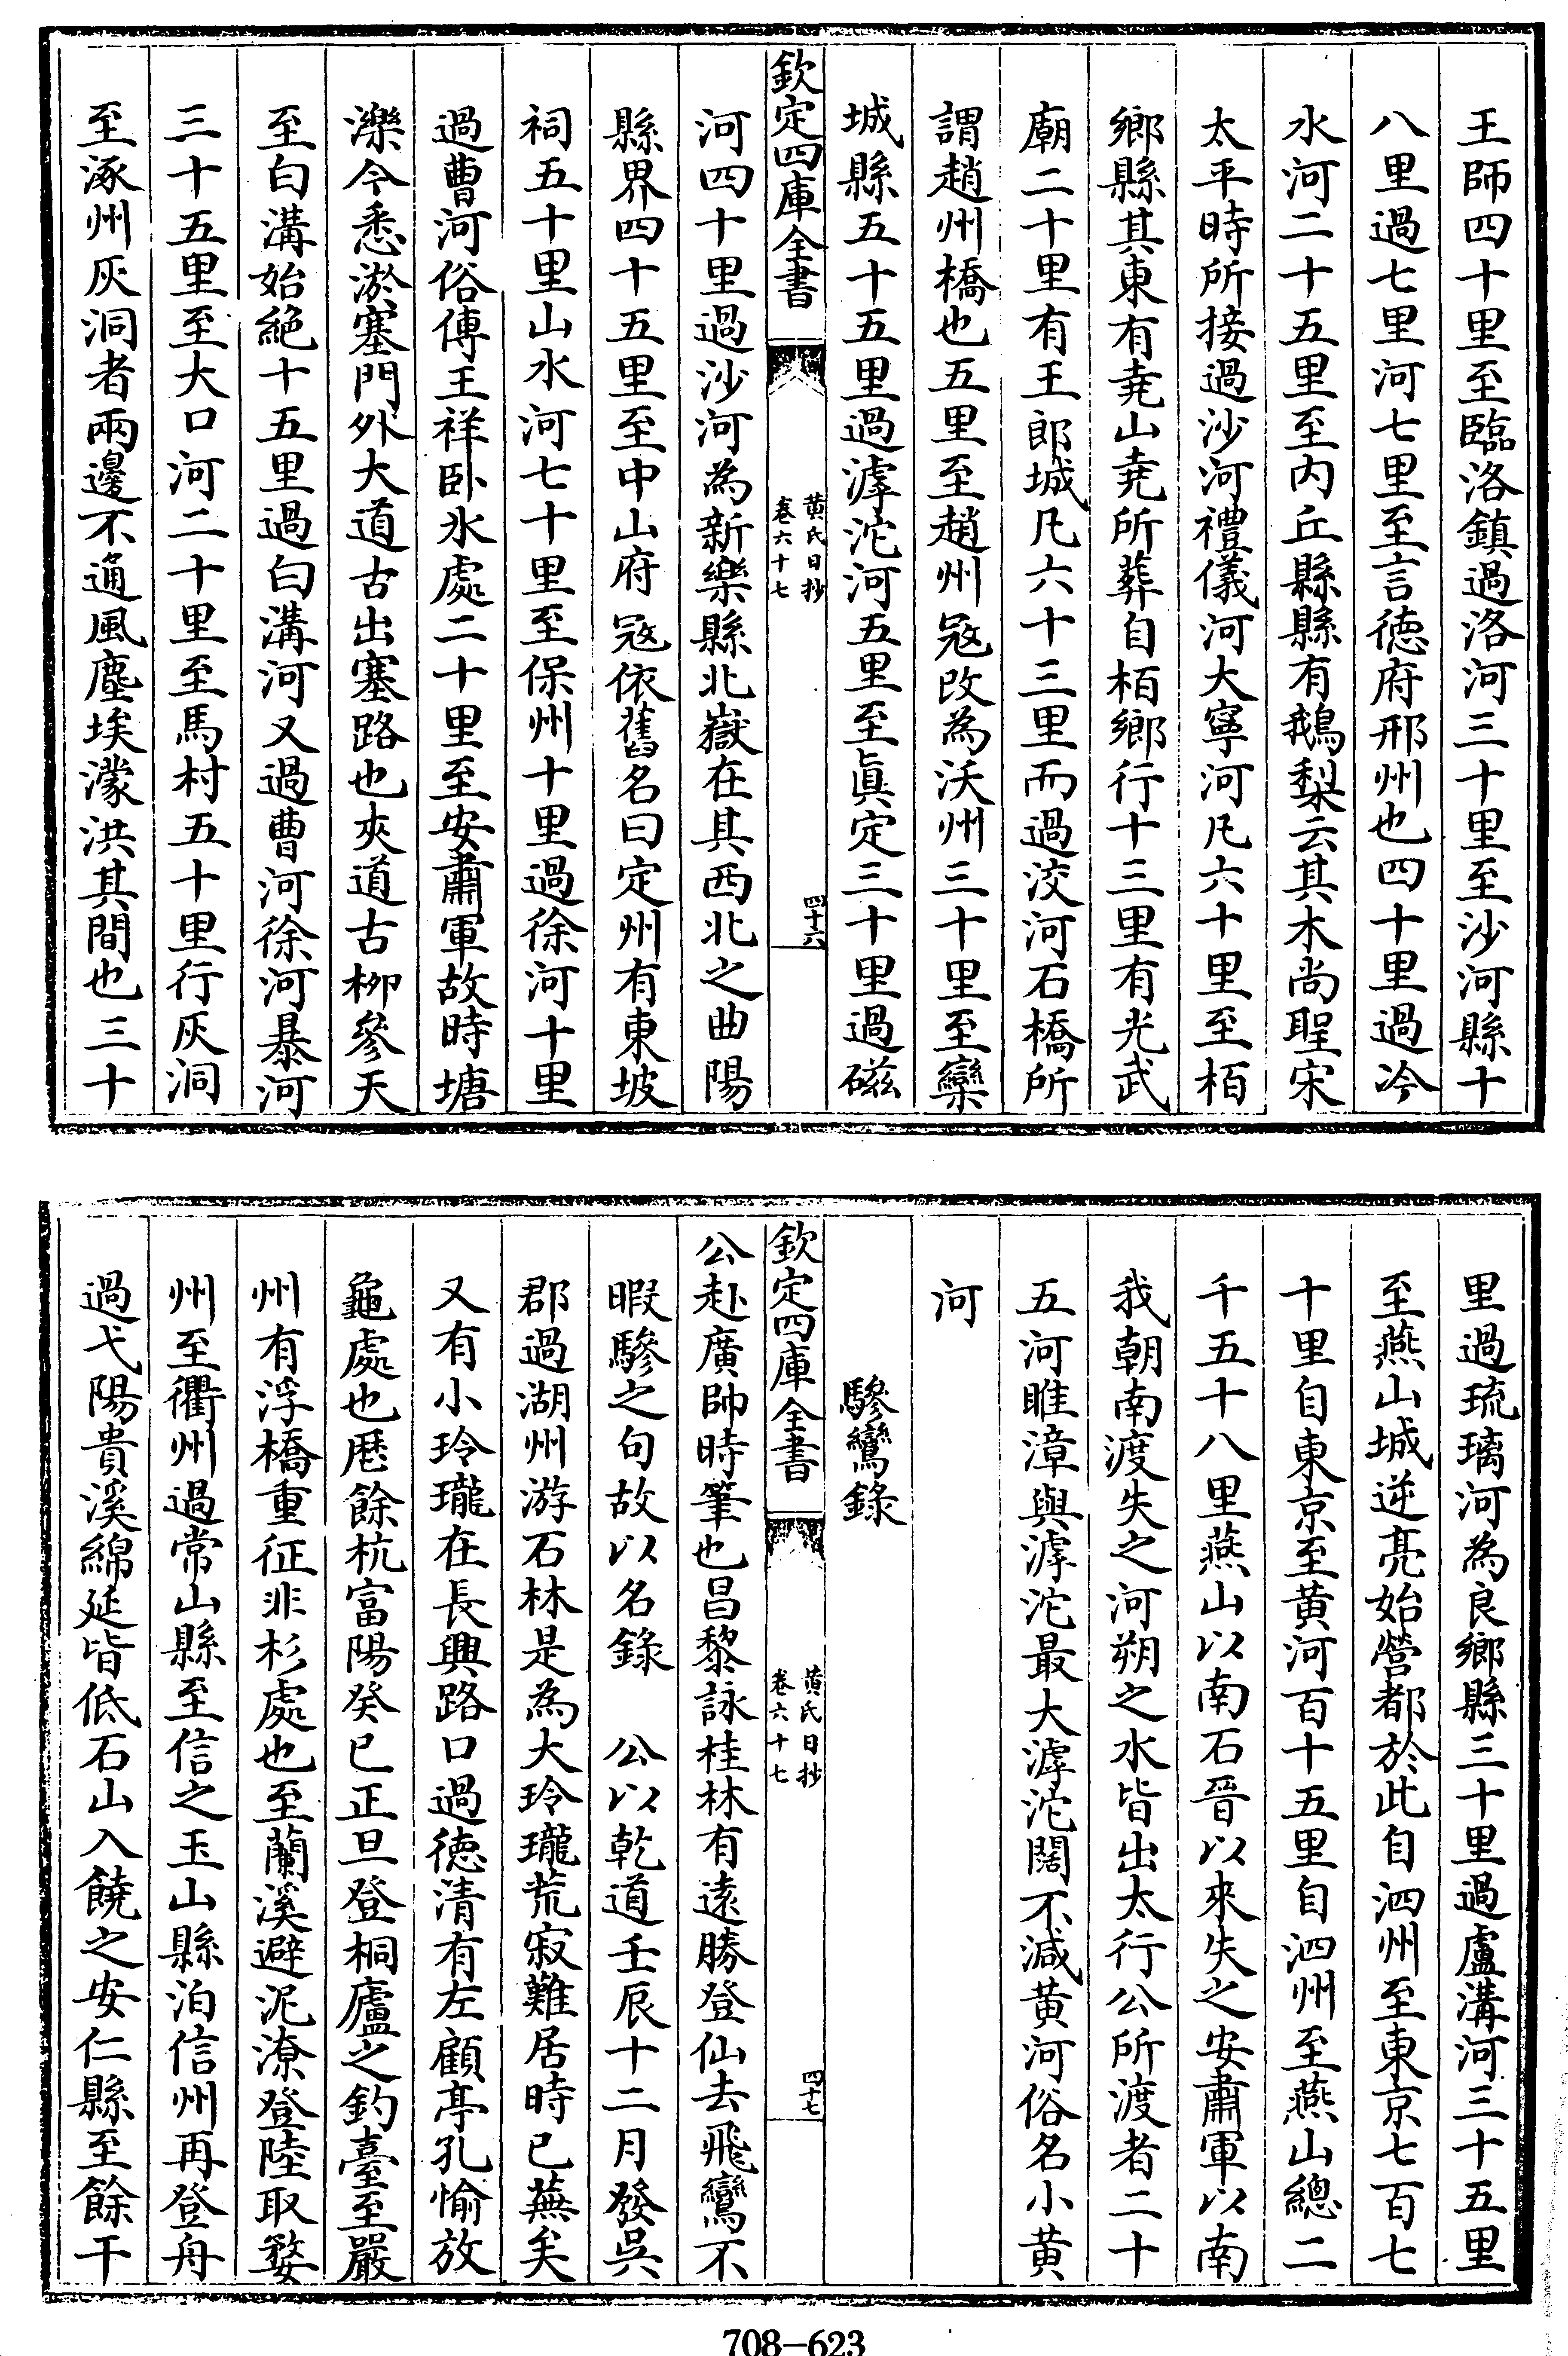 王師四十里至臨洛鎮過洛河三十里至沙河縣十
八里過七里河七里至言德府邢州也四十里過冷
水河二十五里至内丘縣縣有鵝梨云其木尚聖宋
太平時所接過沙河禮儀河大寧河凡六十里至栢
鄉縣其東有堯山堯所葬自栢鄉行十三里有光武
廟二十里有王郎城凡六十三里而過洨河石橋所
謂趙州橋也五里至趙州冦改為沃州三十里至欒
城縣五十五里過滹沱河五里至眞定三十里過磁
欽定四庫全書
黄氏日抄
卷六十七
四十六
河四十里過沙河為新樂縣北嶽在其西北之曲陽
縣界四十五里至中山府冦依舊名曰定州有東坡
祠五十里山水河七十里至保州十里過徐河十里
過曹河俗傳王祥卧氷處二十里至安肅軍故時塘
濼今悉淤塞門外大道古出塞路也夾道古栁參天
至白溝始絶十五里過白溝河又過曹河徐河暴河
三十五里至大口河二十里至馬村五十里行灰洞
至涿州灰洞者兩邊不通風塵埃濛洪其間也三十
里過琉璃河為良鄉縣三十里過盧溝河三十五里
至燕山城逆亮始營都於此自泗州至東京七百七
十里自東京至黄河百十五里自泗州至燕山總二
千五十八里燕山以南石晉以來失之安肅軍以南
我朝南渡失之河朔之水皆出太行公所渡者二十
五河睢漳與滹沱最大滹沱闊不减黄河俗名小黄
河
驂鸞錄
欽定四庫全書
黄氏日抄
卷六十七
四十七
公赴廣帥時筆也昌黎詠桂林有遠勝登仙去飛鸞不
暇驂之句故以名錄　公以乾道壬辰十二月發吳
郡過湖州游石林是為大玲瓏荒寂難居時已蕪矣
又有小玲瓏在長興路口過德清有左顧亭孔愉放
龜處也厯餘杭富陽癸巳正旦登桐廬之釣臺至嚴
州有浮橋重征非杉處也至蘭溪避泥潦登陸取婺
州至衢州過常山縣至信之玉山縣泊信州再登舟
過弋陽貴溪綿延皆低石山入饒之安仁縣至餘干
708-623